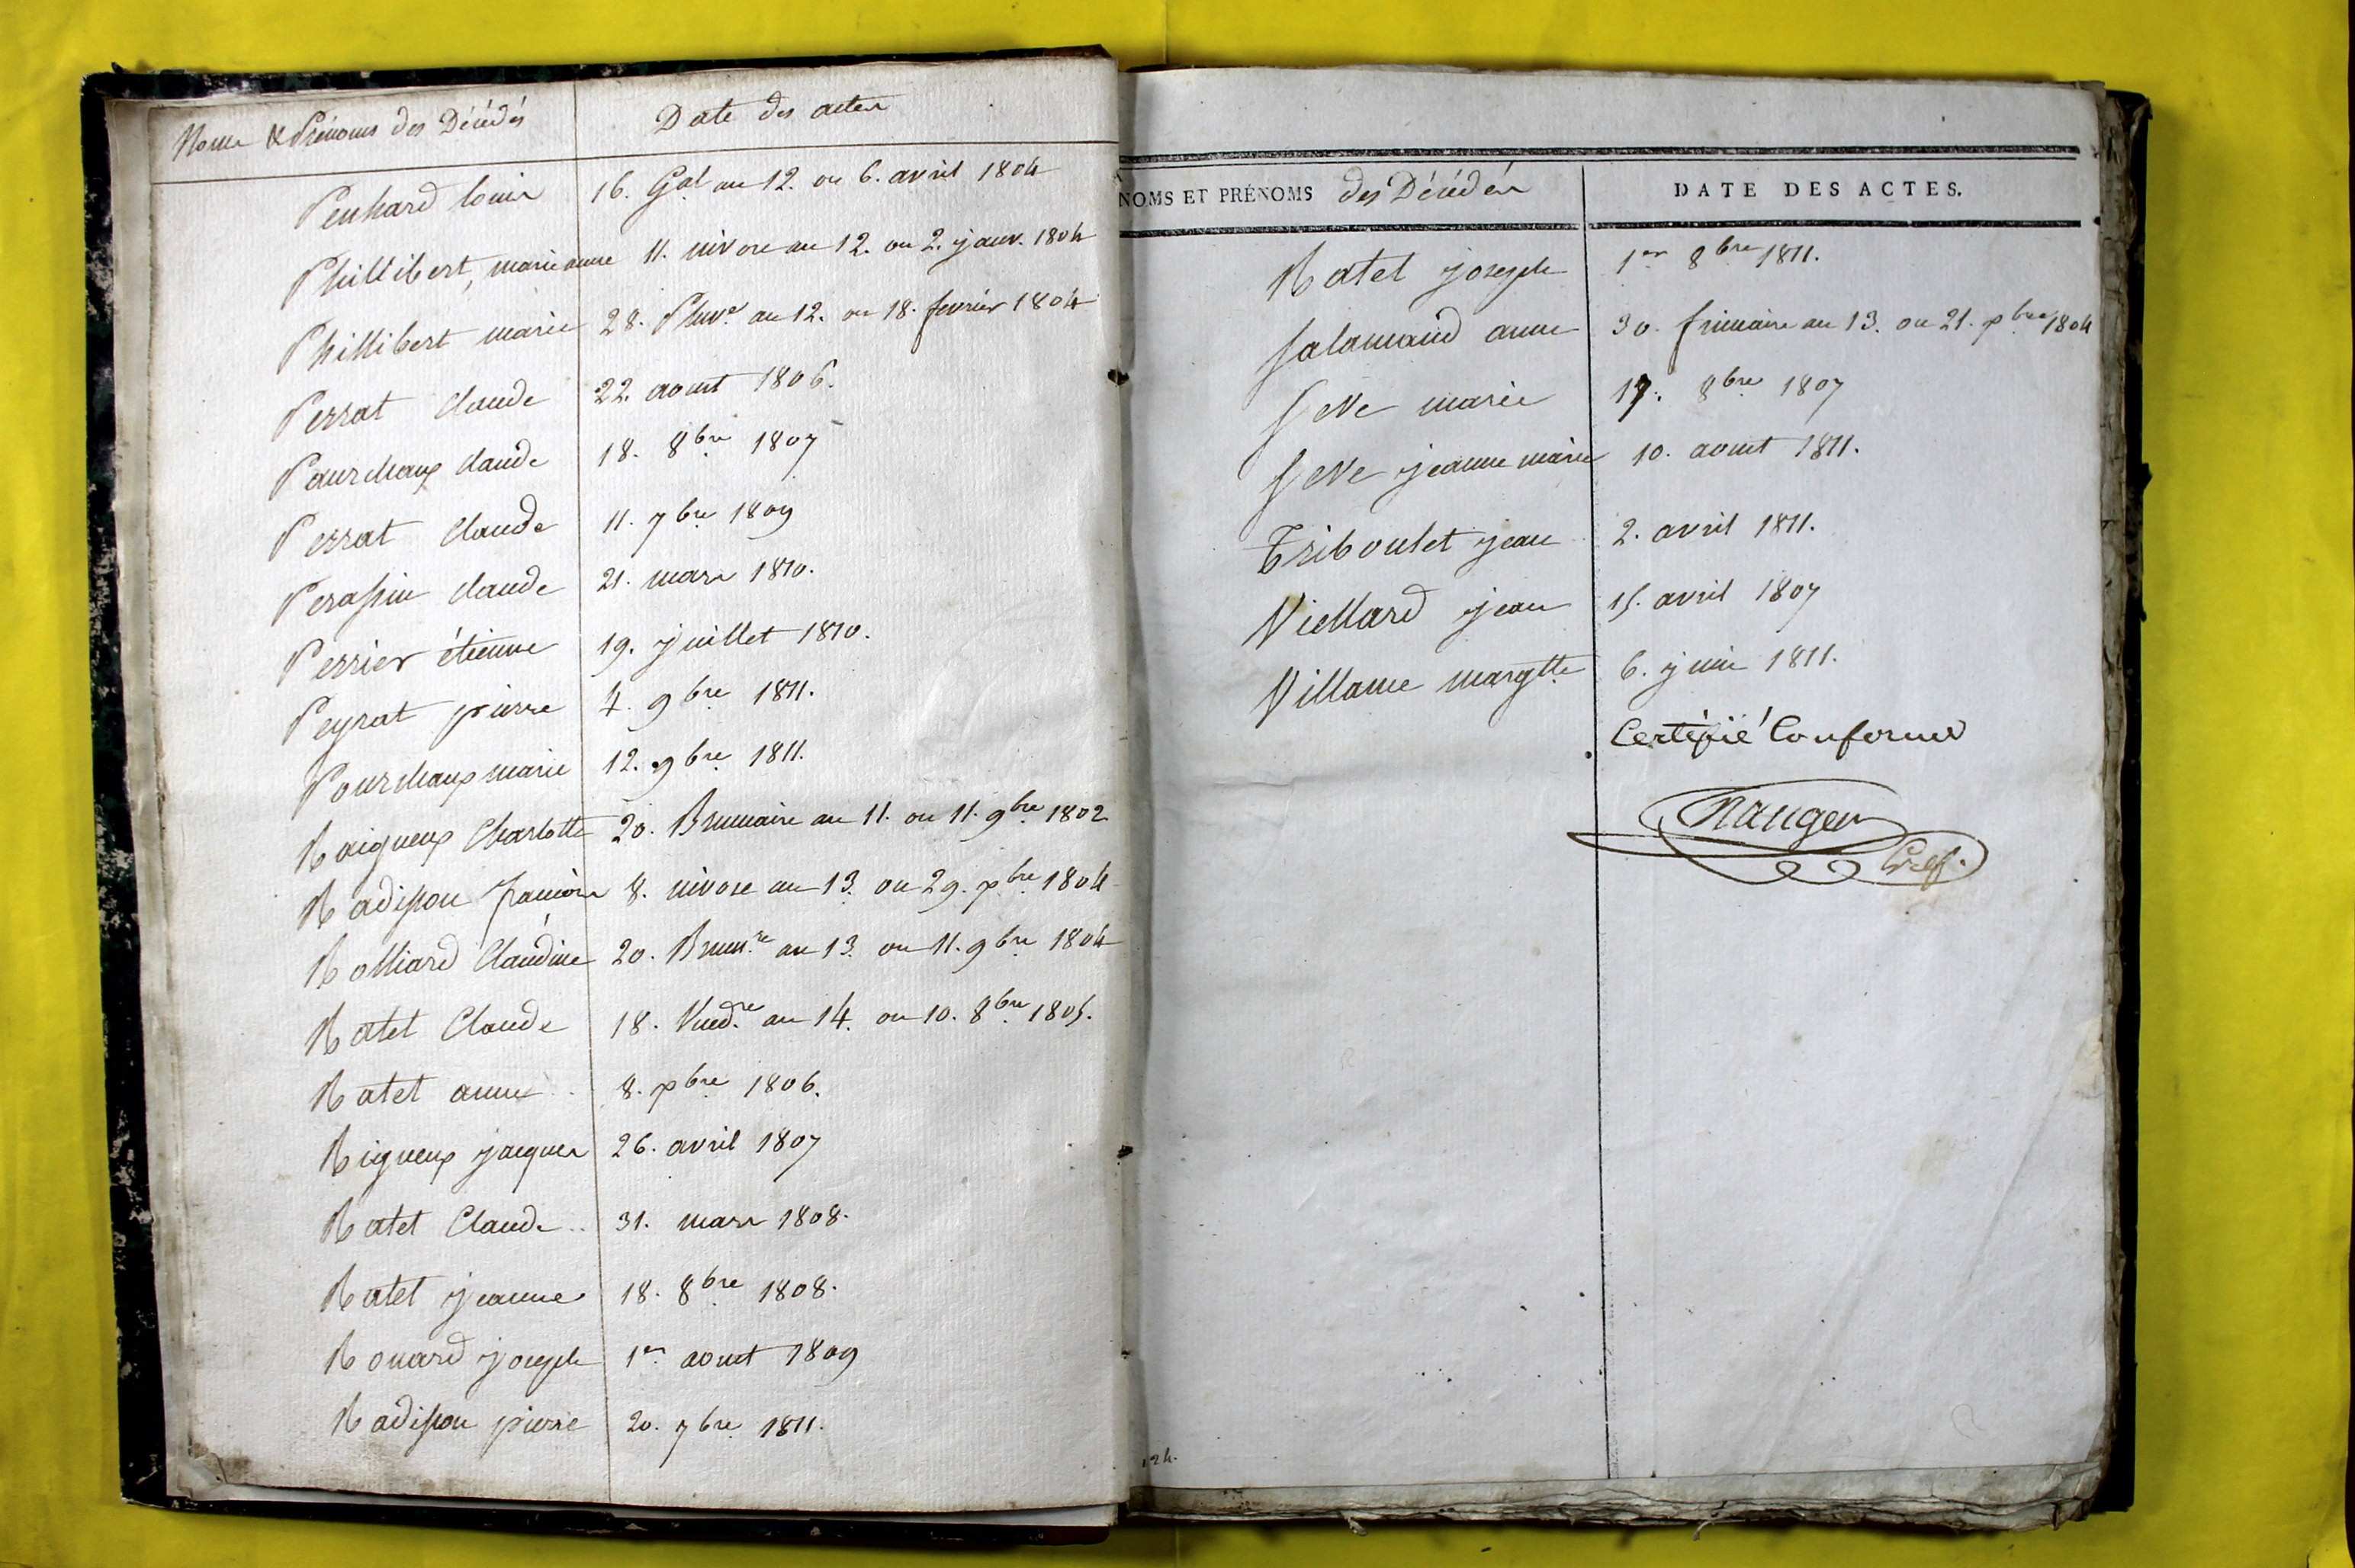 Noms & Prénoms des Décédés Date des actes
Penhard louis 16. Gal an 12. ou 6. avril 1804
Phillibert, marie anne 11. nivose an 12. ou 2. janv. 1804
Phillibert marie 28. Pluve an 12. ou 18. fevrier 1804
Perrat Claude 22. aout 1806.
Pourchaux claude 18. 8bre 1807
Perrat Claude 11. 7bre 1809
Perassin claude 21. mars 1810.
Perrier étienne 19. juillet 1810.
Peyrat pierre 4. 9bre 1811.
Pourchaux marie 12. 9bre 1811.
Raigneux Charlotte 20. Brumaire an 11. ou 11. 9bre 1802
Radisson francois 8. nivose an 13. ou 29. xbre 1804
Rolliard Claudine 20. Brumre an 13. ou 11. 9bre 1804
Ratet Claude 18. Vendre an 14. ou 10. 8bre 1805.
Ratet anne 8. xbre 1806.
Rigneux jacques 26. avril 1807
Ratet Claude 31. mars 1808.
Ratet jeanne 18. 8bre 1808.
Rouard joseph 1er aout 1809
Radisson pierre 20. 7bre 1811.
NOMS ET PRÉNOMS des Décédés DATE DES ACTES.
Ratet joseph 1er 8bre 1811.
Salamand anne 30. frimaire an 13. ou 21. xbre 1804
Seve marie 17. 8bre 1807
Seve jeanne marie 10. aout 1811.
Triboulet jean 2. avril 1811.
Viellard jean 15. avril 1807
Villame margtte 6. juin 1811.
Certifié Conforme
Greff.